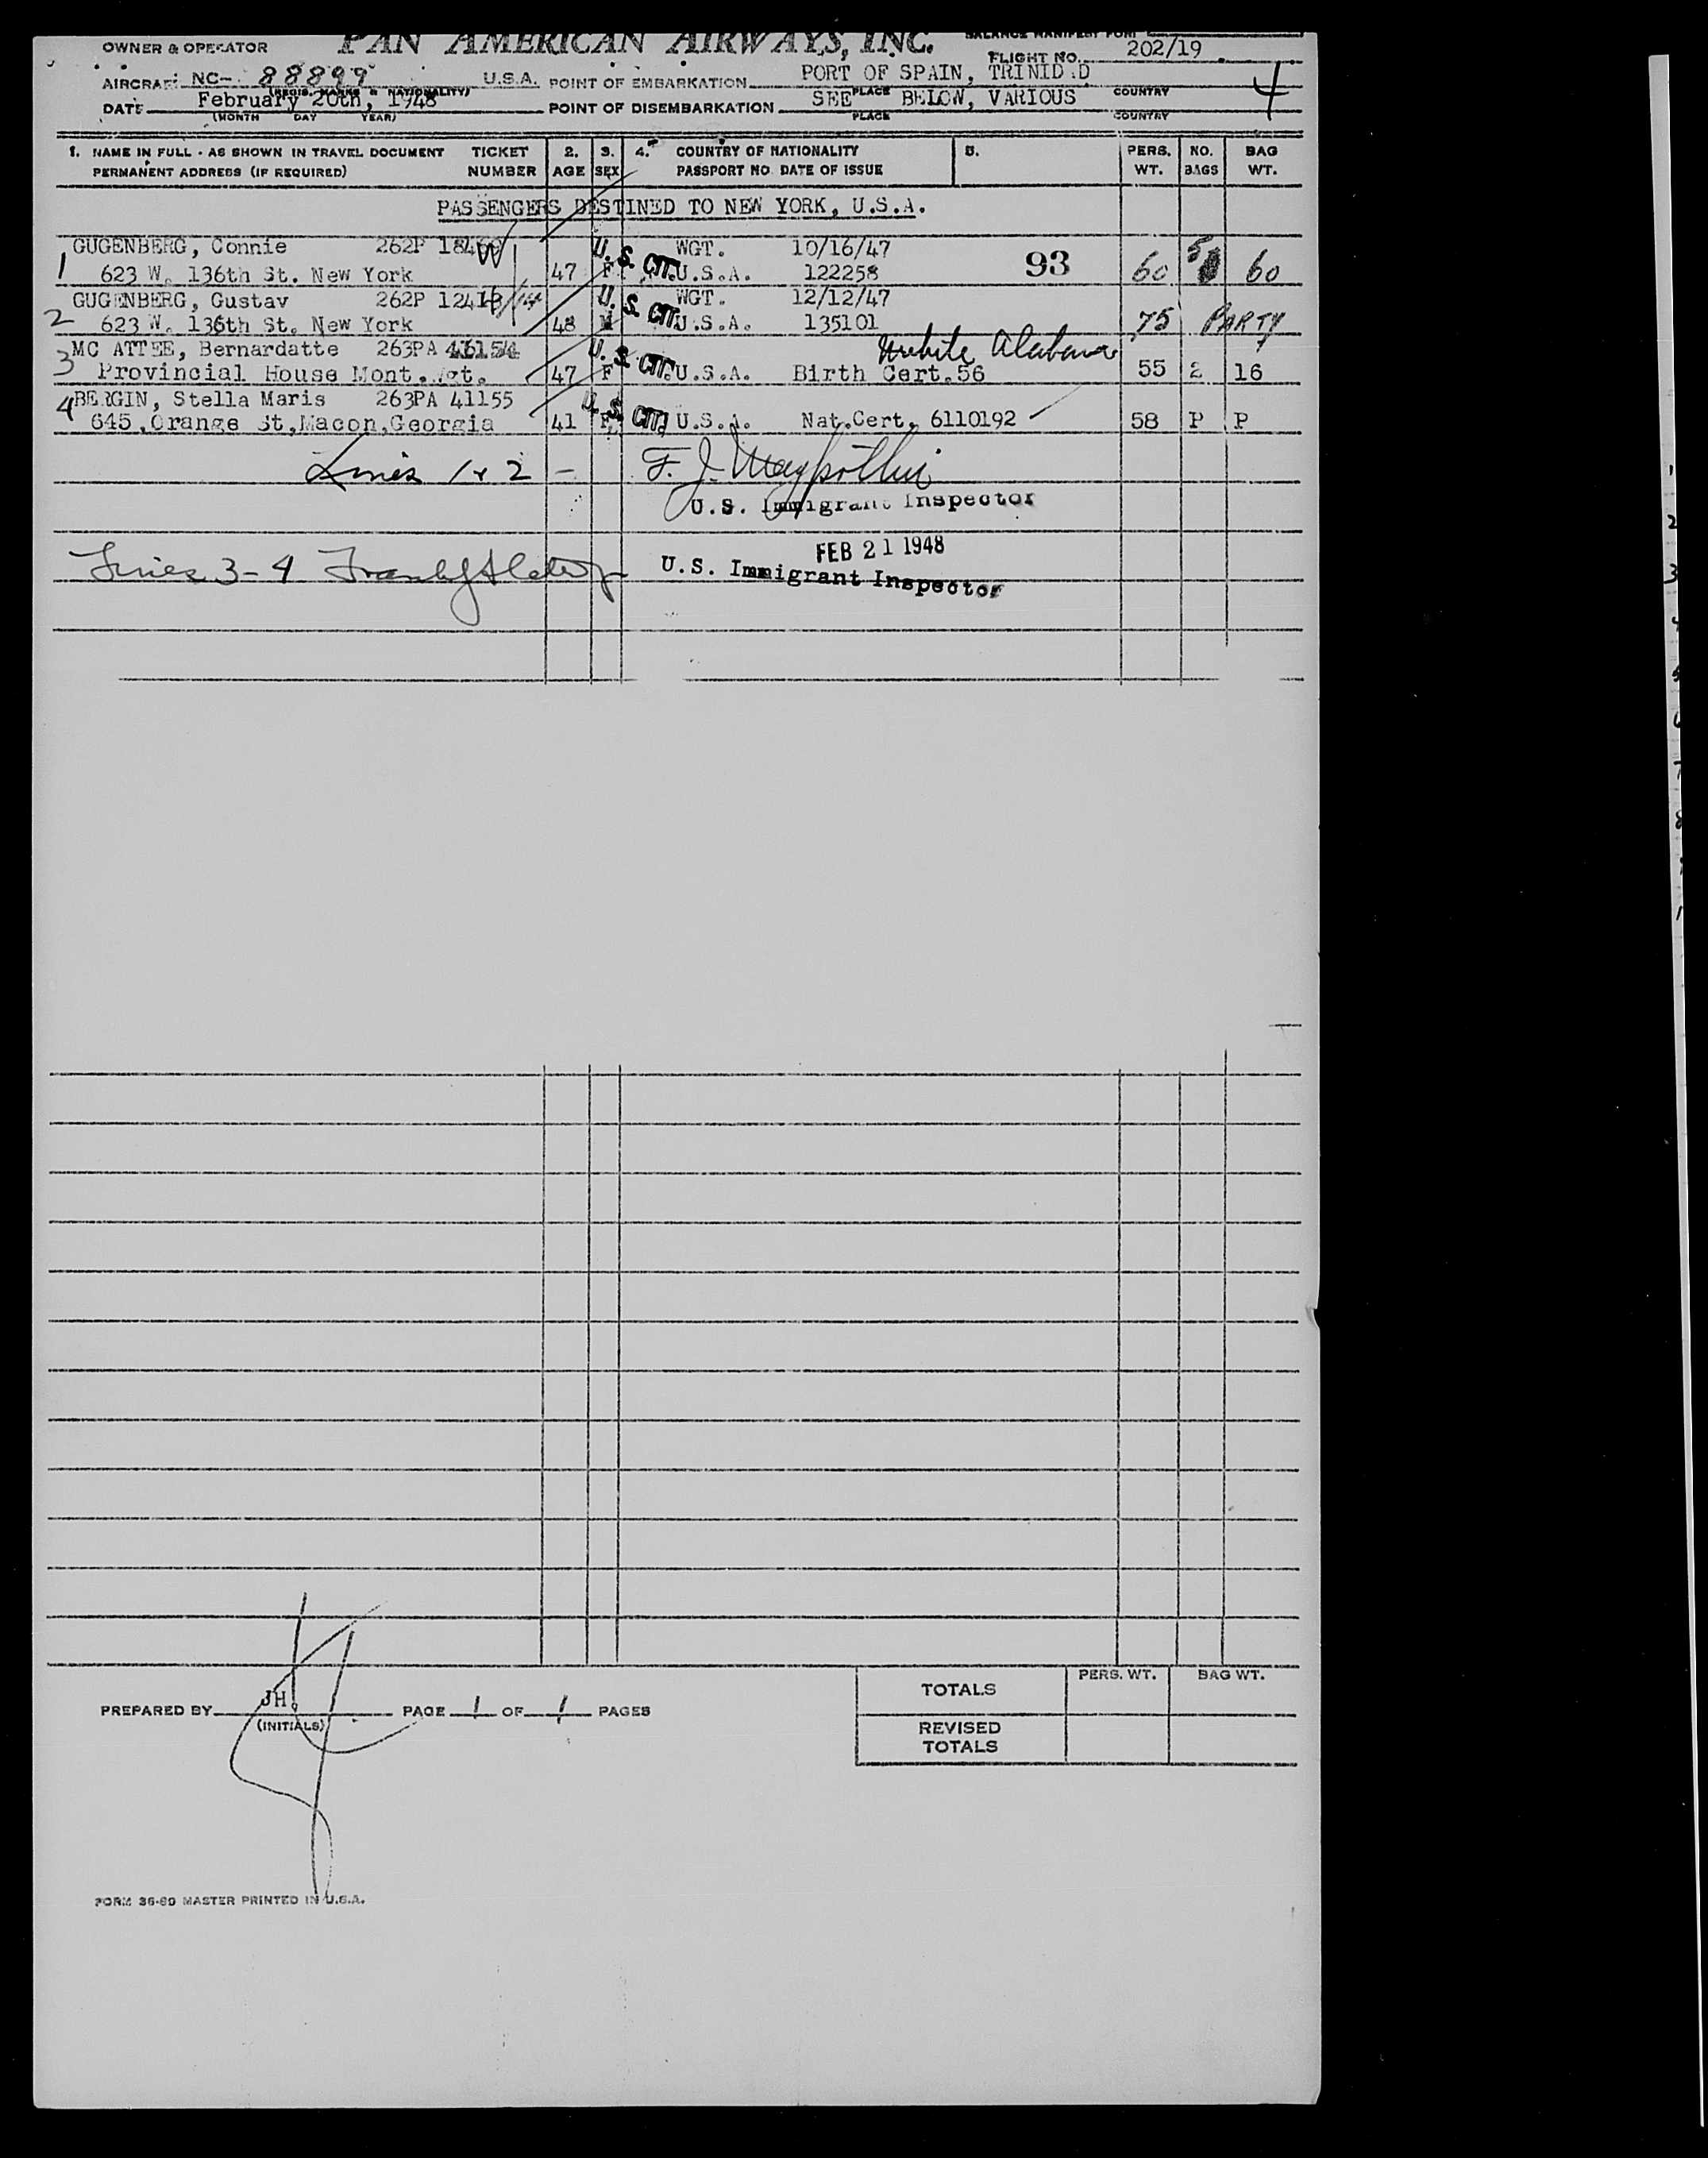 PAN AMERICAN AIRWAYS, INC.
OWNER & OPERATOR
FLIGHT NO. 202/19
AIRCRAFT NC- 88899 U.S.A. POINT OF EMBARKATION PORT OF SPAIN, TRINID.D
(REGIS. MARKS & NATIONALITY) PLACE COUNTRY
4
DATE February 20th, 1948 POINT OF DISEMBARKATION SEE BELOW, VARIOUS
(MONTH DAY YEAR) PLACE COUNTRY
1. NAME IN FULL - AS SHOWN IN TRAVEL DOCUMENT TICKET 2. 3. 4. COUNTRY OF NATIONALITY 5. PERS. NO. BAG
PERMANENT ADDRESS (IF REQUIRED) NUMBER AGE SEX PASSPORT NO. DATE OF ISSUE WT. BAGS WT.
PASSENGERS DESTINED TO NEW YORK, U.S.A.
GUGENBERG, Connie 262P U.S. CIT. WGT. 10/16/47
1 623 W. 136th St. New York 47 F U.S.A. 122258 93 60 60
GUGENBERG, Gustav 262P U.S. CIT. WGT. 12/12/47
2 623 W. 136th St. New York 48 M U.S.A. 135101 75 PARTY
MC ATTEE, Bernardatte 263PA U.S. CIT. Alabama
3 Provincial House Mont. 47 F U.S.A. Birth Cert.56 55 2 16
BERGIN, Stella Maris 263PA 41155 U.S. CIT.
4 645,Orange St,Macon,Georgia 41 F U.S.A. Nat.Cert. 6110192 58 P P
Lines 1 & 2 - F. J.
U.S. Immigrant Inspector
FEB 21 1948
Lines 3-4
U.S. Immigrant Inspector
PERS. WT. BAG WT.
TOTALS
PREPARED BY JH. PAGE 1 OF 1 PAGES
(INITIALS)
REVISED
TOTALS
FORM 36-60 MASTER PRINTED IN U.S.A.